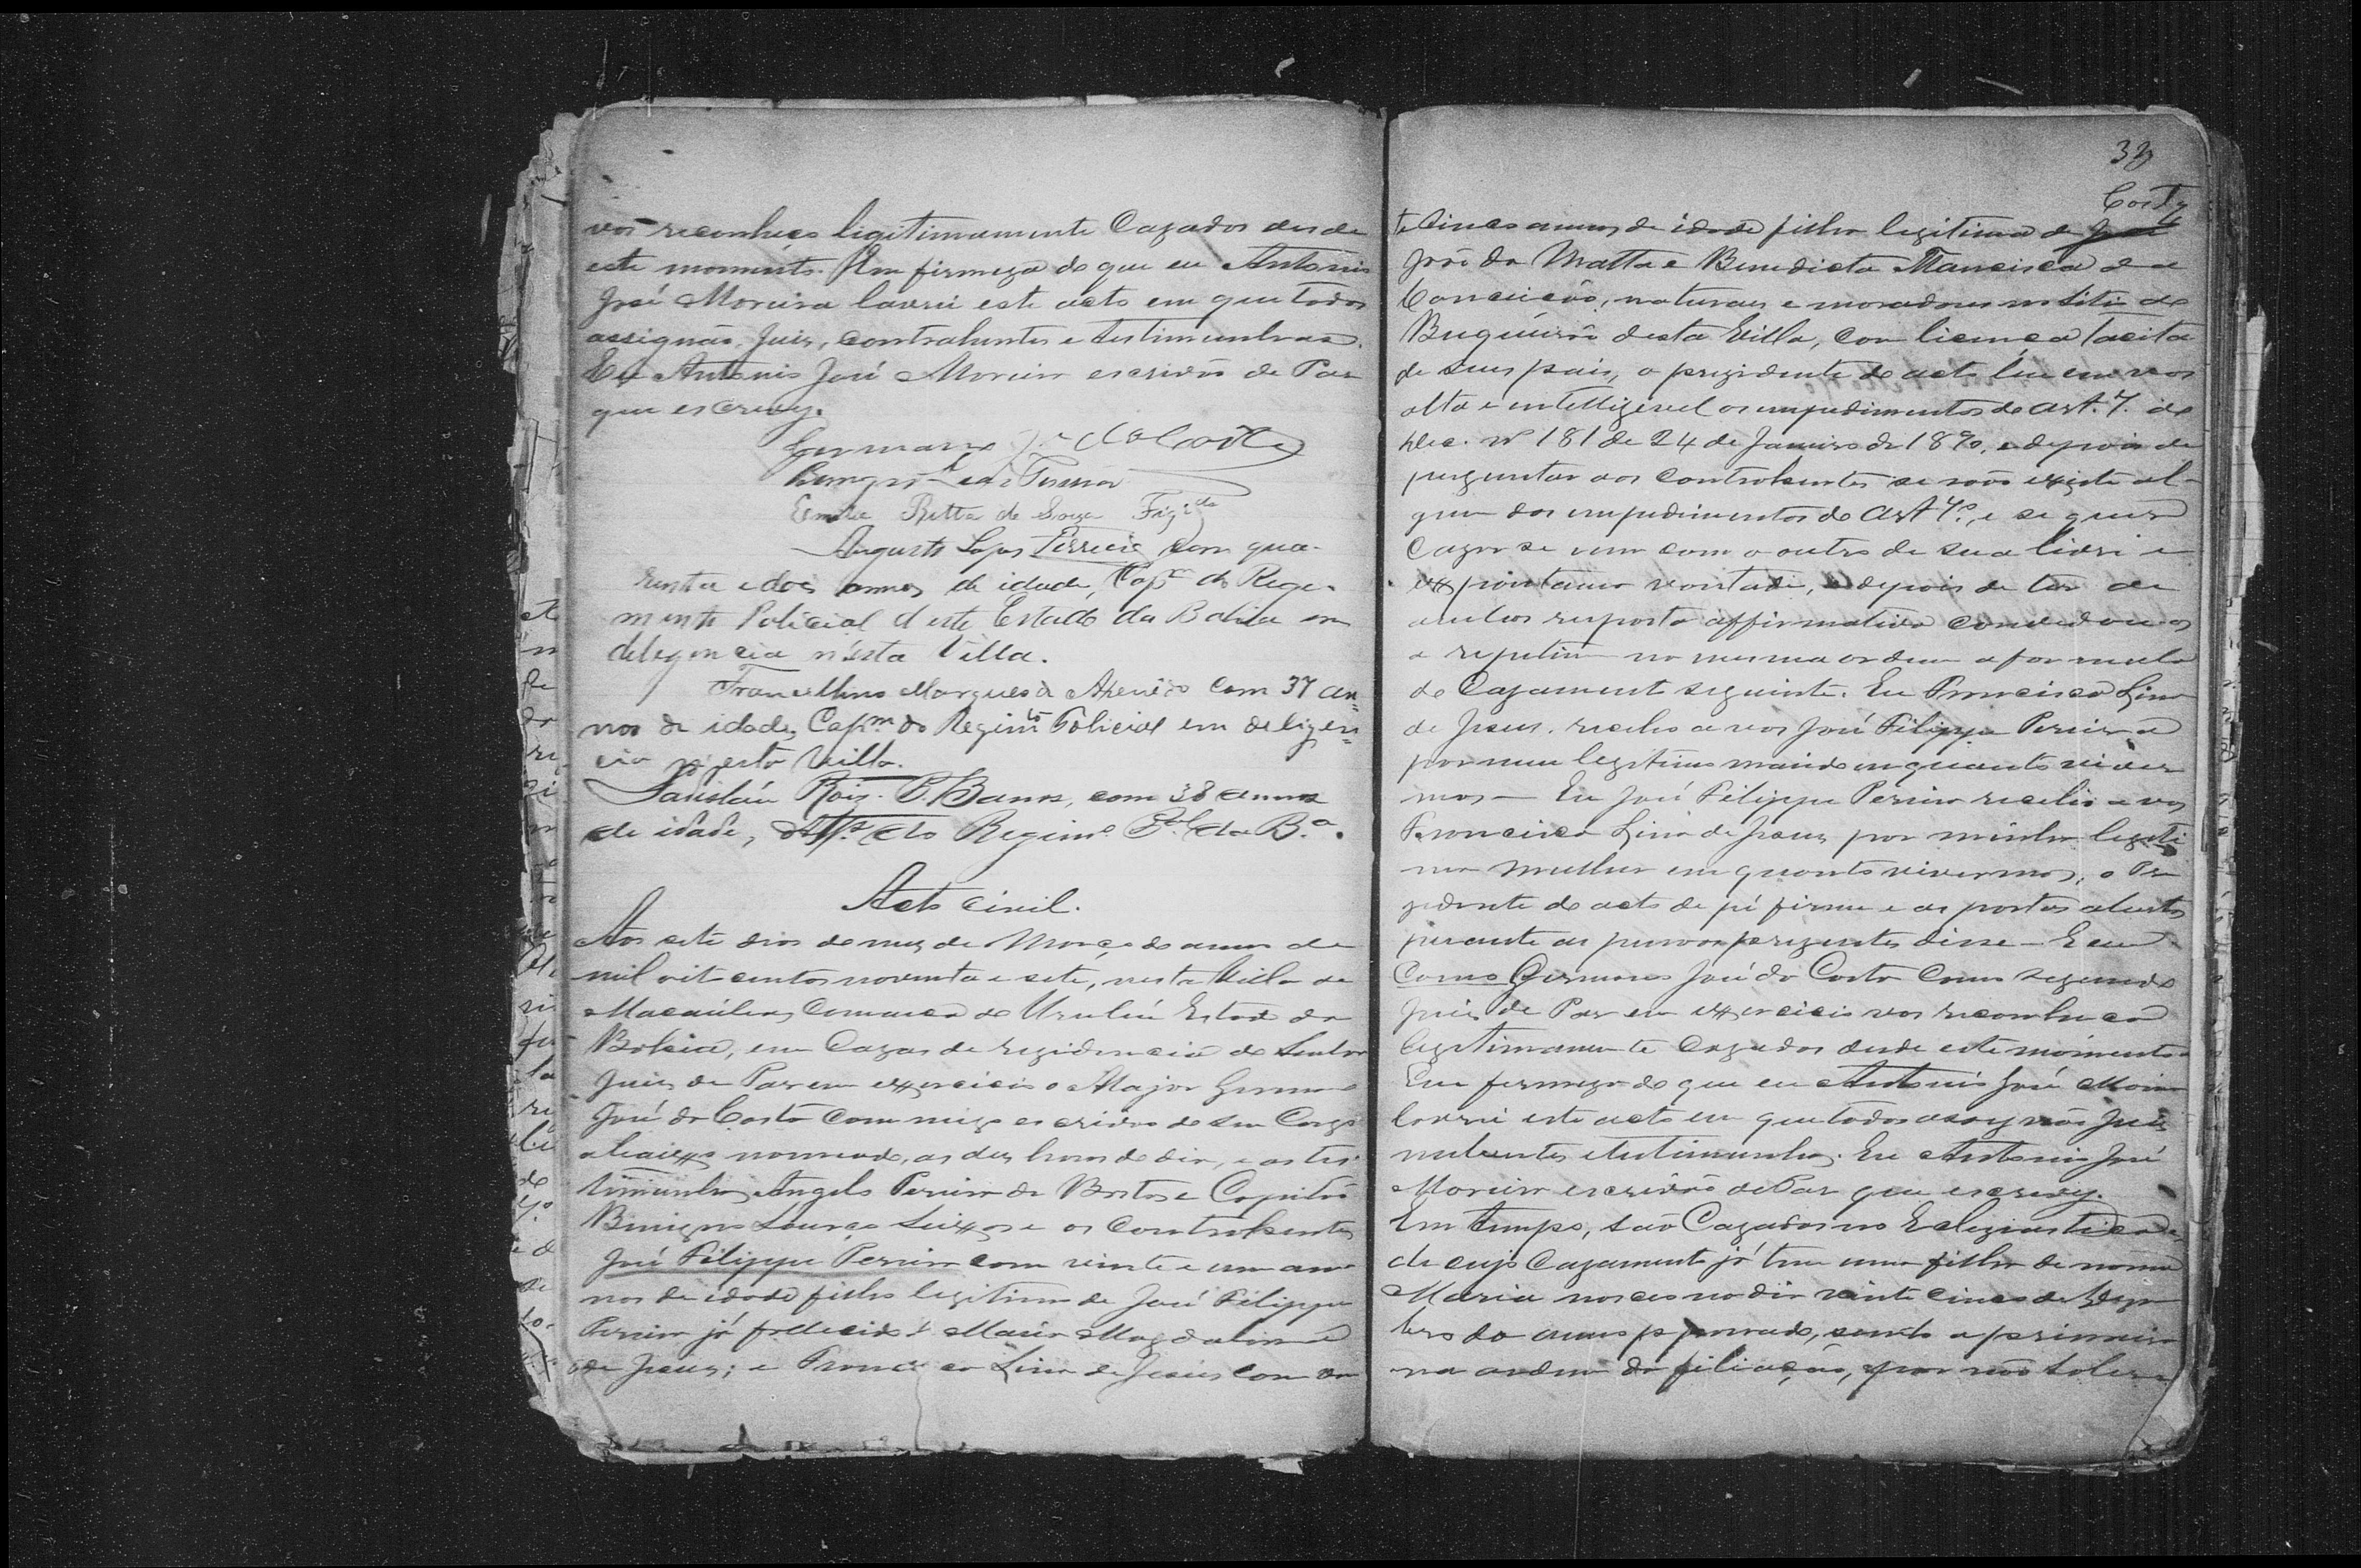 vos reconheço legitimamente Cazados desde
este momento. Em firmeza do que eu Antonio
José Moreira lavrei este acto em que todos
assignão, Juis, contrahentes e testimunhas.
Eu Antonio José Moreira escrivão de Paz
que escrevy.
Germano José da Costa
Emilia Ritta de Souza Figdo
Augusto Lopes Ferreira com qua-
renta e dois annos de idade, Capm do Rege-
mento Policial d'este Estado da Bahia em
delegencia n'esta Villa.
Francellino Marques de Azevedo com 37 an=
nos de idade, Capm do Regimto Policial em deligen=
cia n'esta Villa.
Roiz. P. Barros, com 38 annos
de idade, do Regimo Pal da Ba.
Acto civil.
Aos sete dias do mez de Março do anno de
mil oit centos noventa e sete, nesta Villa de
Macaúbas, Comarca de Urubú Estado da
Bahia, em Cazas de rezidencia do Senhor
Juis de Paz em exxercicio o Major Germano
José da Costa commigo escrivão de seu Cargo
abaixxo nomeado, as dez horas do dia, e as tes-
timunhas Angelo Pereira de Bastos e Capitão
Benigno Souza Seixxas e os contrahentes
José Filippe Pereira com vinte e um an-
nos de idade filho legitimo de José Filippe
Pereira já fallecido e Maria Magdalena
de Jesus; e Francisca Lina de Jesus com vin
33
Costa
te Cinco annos de idade filha legitima de
João da Matta e Benedicta Francisca da
Conceição, naturaes e moradores no Sitio do
Buqueirão desta Villa, com licença tacita
de seus pais, o prezidente do acto leu em vos
alta e intelligivel os impedimentos do Art. 7. do
Dec. No 181 de 24 de Janeiro de 1890, e depois de
perguntar aos contrahentes se não exxiste al-
gum dos impedimentos do Art 7o, e se querem
Cazar se um com o outro de sua livre e
exxpontanea vontade, e depois de ter de
ambos resposta affirmativa convidou os
a repetir na mesma ordem a formula
do Cazamento seguinte. Eu Francisca Lina
de Jesus, recebo a vos José Filippe Pereira
por meu legitimo marido enquanto viver
mos — Eu José Filippe Pereira recebo a vos
Francisca Lina de Jesus, por minha legiti
ma mulher em quanto vivermos, o Pre
zidente do acto de pé firme e as portas abertas
perante as pessoas prezentes disse — E eu
Como Germano José da Costa como segundo
Juis de Paz em exxercicio vos reconheço
legitimamente Cazados desde este momento
Em firmeza do que eu Antonio José Moreira
lavrei este acto em que todos assignão Juis
nubentes e testimunhas. Eu Antonio José
Moreira escrivão de Paz que escrevy.
Em tempo, são Cazados no Eclezиastico
de cujo Cazamento já tem uma filha de nome
Maria nasceo no dia vinte cinco de
bro do anno p. passado, sendo a primeira
na ordem da filiação, e por não saber